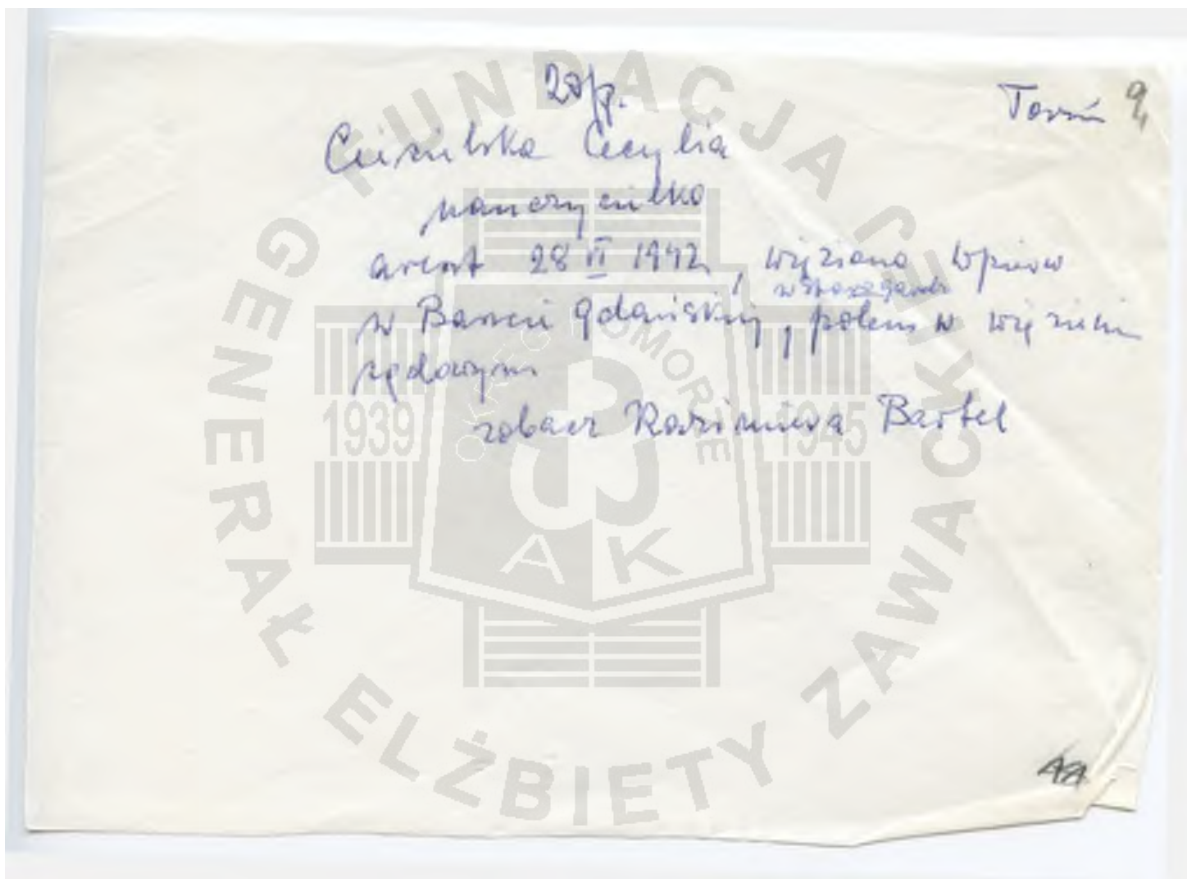 Toruń
Ciesielska Cecylia
nauczycielka
areszt 28 VI 1942, więziona wpierw
w Starogardzie
w Baszcie Gdańskiej, potem w więzieniu
sądowym
zobacz Kazimiera Bartel
FUNDACJA GENERAŁ ELŻBIETY ZAWACKIEJ
OKRĘG POMORZE
1939 1945
AK